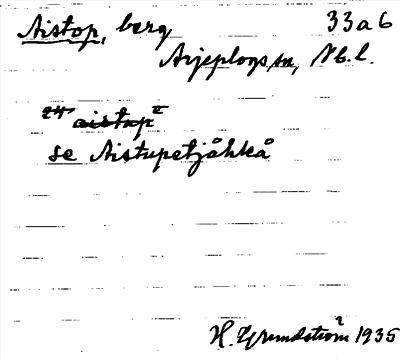 Aistop, berg 33a6
Arjeplogs sn, Nb. l.
24 aistup II
se Aistupetjåhkå
H. Grundström 1935